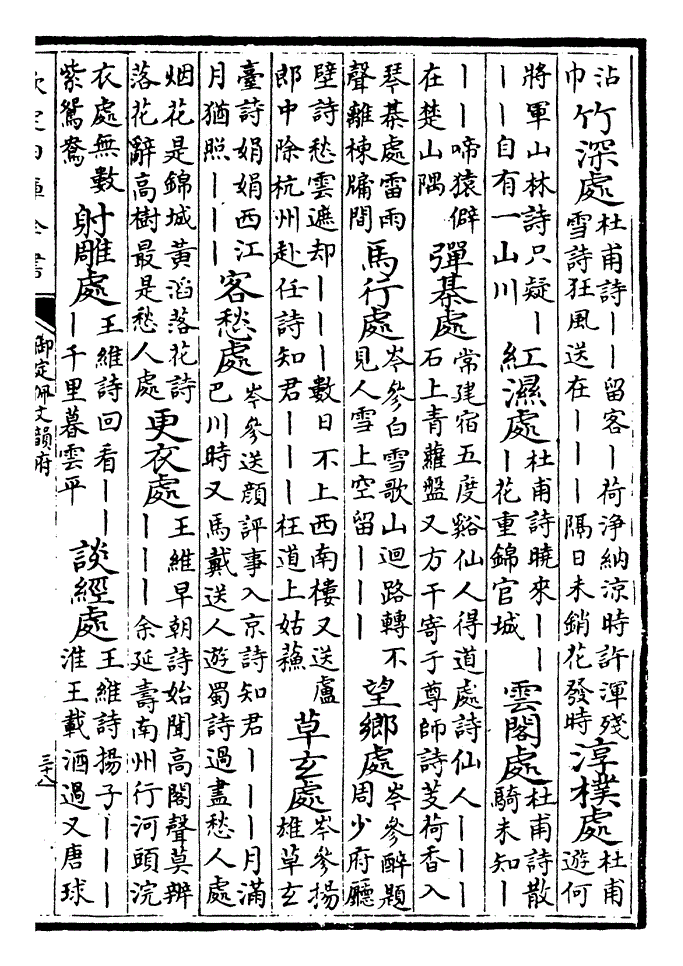 沾
巾
竹深處
杜甫詩丨丨留客丨荷淨納涼時許渾殘
雪詩狂風送在丨丨丨隔日未銷花發時
淳樸處
杜甫
遊何
將軍山林詩只疑丨
丨丨自有一山川
紅濕處
杜甫詩曉來丨丨
丨花重錦官城
雲閣處
杜甫詩散
騎未知丨
丨丨啼猿僻
在楚山隅
彈棊處
常建宿五度谿仙人得道處詩仙人丨丨丨
石上青蘿盤又方干寄于尊師詩芰荷香入
琴棊處雷雨
聲離棟牖間
馬行處
岑參白雪歌山迴路轉不
見人雪上空留丨丨丨
望鄉處
岑參醉題
周少府廳
壁詩愁雲遮却丨丨丨數日不上西南樓又送盧
郎中除杭州赴任詩知君丨丨丨枉道上姑蘇
草玄處
岑參揚
雄草玄
臺詩娟娟西江
月猶照丨丨丨
客愁處
岑參送顔評事入京詩知君丨丨丨月滿
巴川時又馬戴送人遊蜀詩過盡愁人處
烟花是錦城黃滔落花詩
落花辭高樹最是愁人處
更衣處
王維早朝詩始聞高閣聲莫辨
丨丨丨余延壽南州行河頭浣
衣處無數
紫鴛鴦
射雕處
王維詩回看丨丨
丨千里暮雲平
談經處
王維詩揚子丨丨丨
淮王載酒過又唐球
欽定四庫全書
御定佩文韻府
三十八